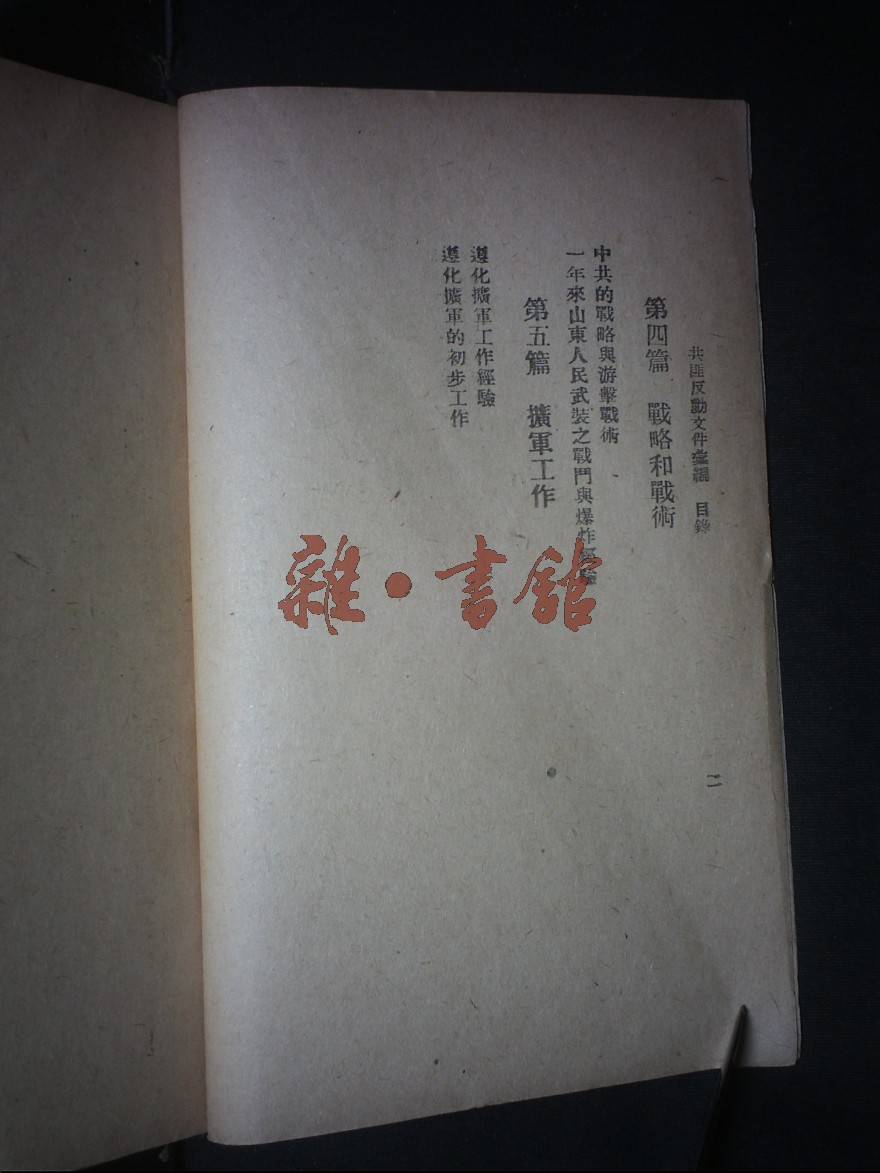 共匪反動文件彙編 目錄
第四篇 戰略和戰術
中共的戰略與游擊戰術
一年來山東人民武裝之戰鬥與爆炸經驗
第五篇 擴軍工作
遵化擴軍工作經驗
遵化擴軍的初步工作
二
雜·書館